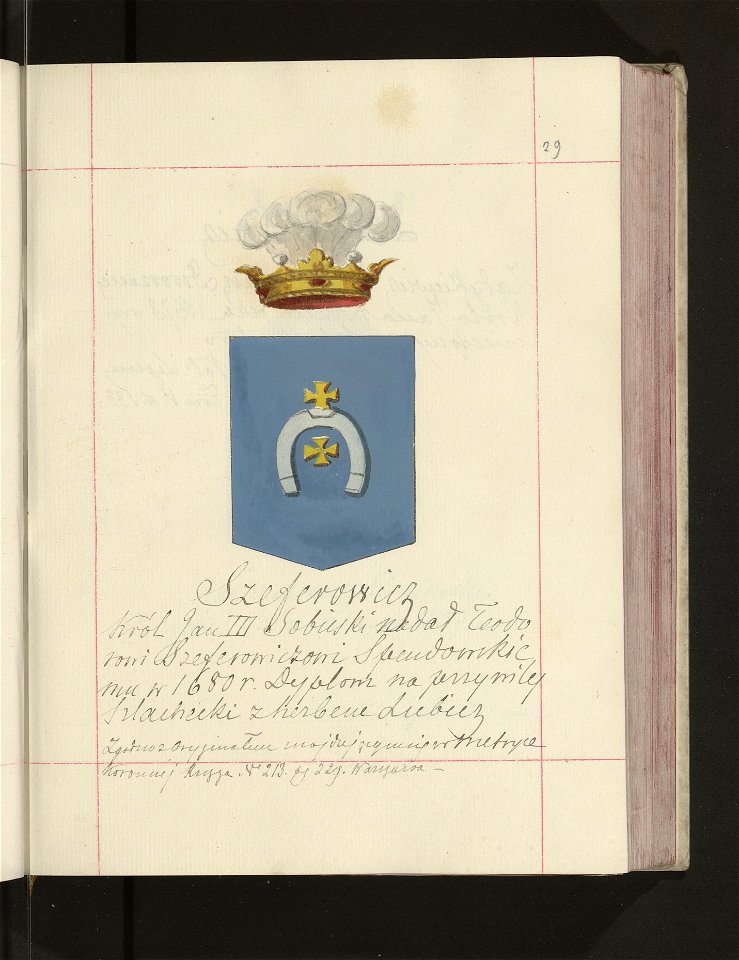 29
Szeferowicz
Król Jan III Sobieski nadał Teodo
rowi Szeferowiczowi Spendowskie
mu w 1680 r. Dyplom na przywiley
Szlachecki z herbem Lubicz
Zgodno z Oryginałem znajdującym się w Metryce
Koronnej Księga No 213. pg 229. Warszawa –